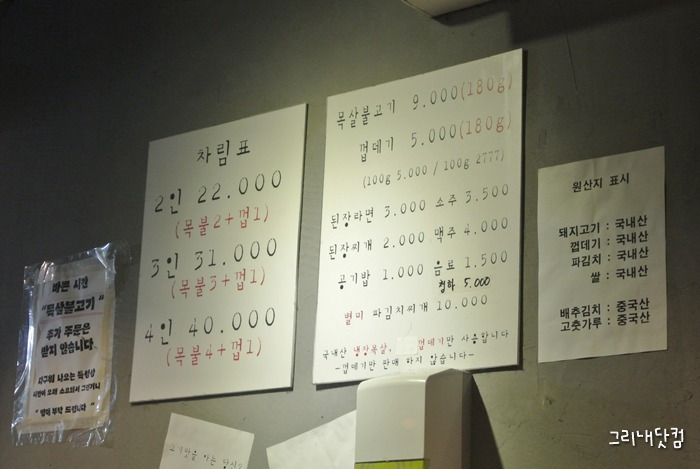 바쁜 시간
"목살불고기"
추가 주문은
받지 않습니다.
"양해 부탁 드립니다"
차림표
2인 22.000
(목불2+껍1)
3인 31.000
(목불3+껍1)
4인 40.000
(목불4+껍1)
목살불고기 9.000(180g)
껍데기 5.000(180g)
(100g 5.000 / 100g 2777)
된장라면 3.000 소주 3.500
된장찌개 2.000 맥주 4.000
공기밥 1.000 음료 1.500
청하 5.000
별미 파김치찌개 10.000
국내산 냉장목살, 껍데기만 사용합니다
-껍데기만 판매 하지 않습니다-
원산지 표시
돼지고기 : 국내산
껍데기 : 국내산
파김치 : 국내산
쌀 : 국내산
배추김치 : 중국산
고춧가루 : 중국산
그리내닷컴